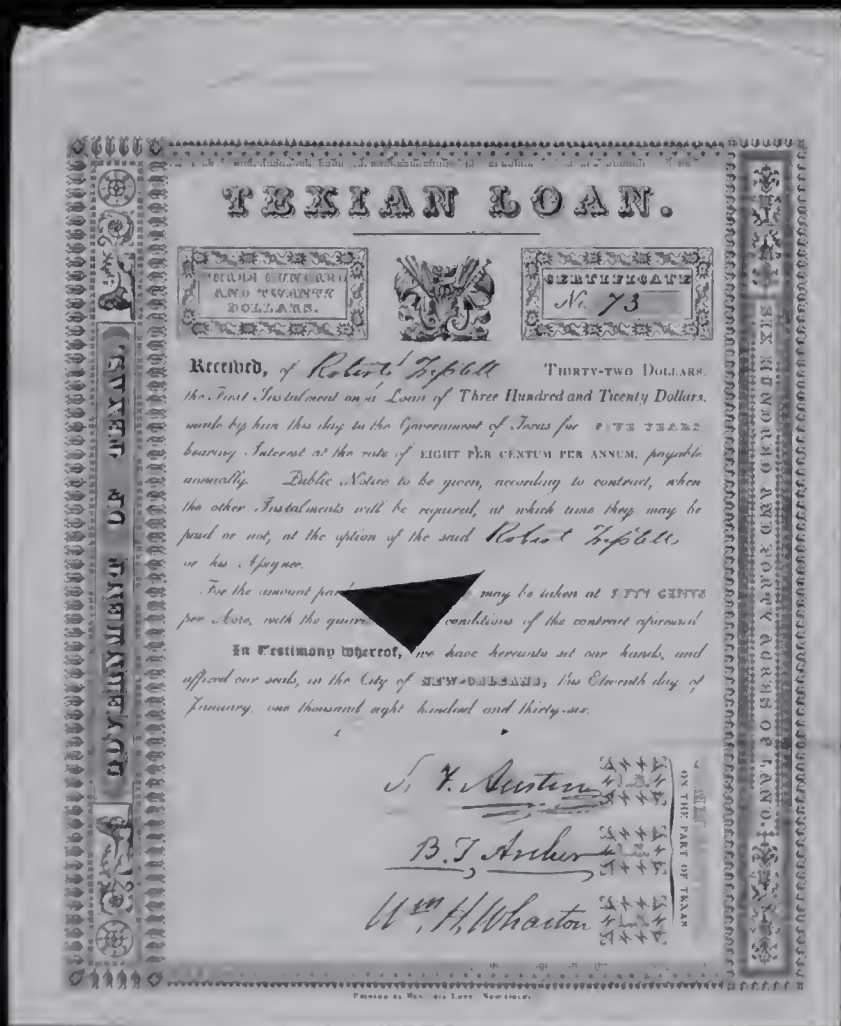 TEXIAN LOAN.
THREE HUNDRED
AND TWENTY
DOLLARS.
CERTIFICATE
No. 73
Received, of Robert THIRTY-TWO DOLLARS,
the First Instalment on a Loan of Three Hundred and Twenty Dollars,
made by him this day to the Government of Texas for FIVE YEARS
bearing Interest at the rate of EIGHT PER CENTUM PER ANNUM, payable
annually. Public Notice to be given, according to contract, when
the other Instalments will be required, at which time they may be
paid or not, at the option of the said Robert
or his Assignee.
For the amount paid may be taken at FIFTY CENTS
per Acre, with the conditions of the contract aforesaid
In Testimony whereof, we have hereunto set our hands, and
affixed our seals, in the City of NEW-ORLEANS, this Eleventh day of
January, one thousand eight hundred and thirty-six.
S. F. Austin
B. T. Archer
Wm. H. Wharton
ON THE PART OF TEXAS
GOVERNMENT OF TEXAS.
SIX HUNDRED AND FORTY ACRES OF LAND.